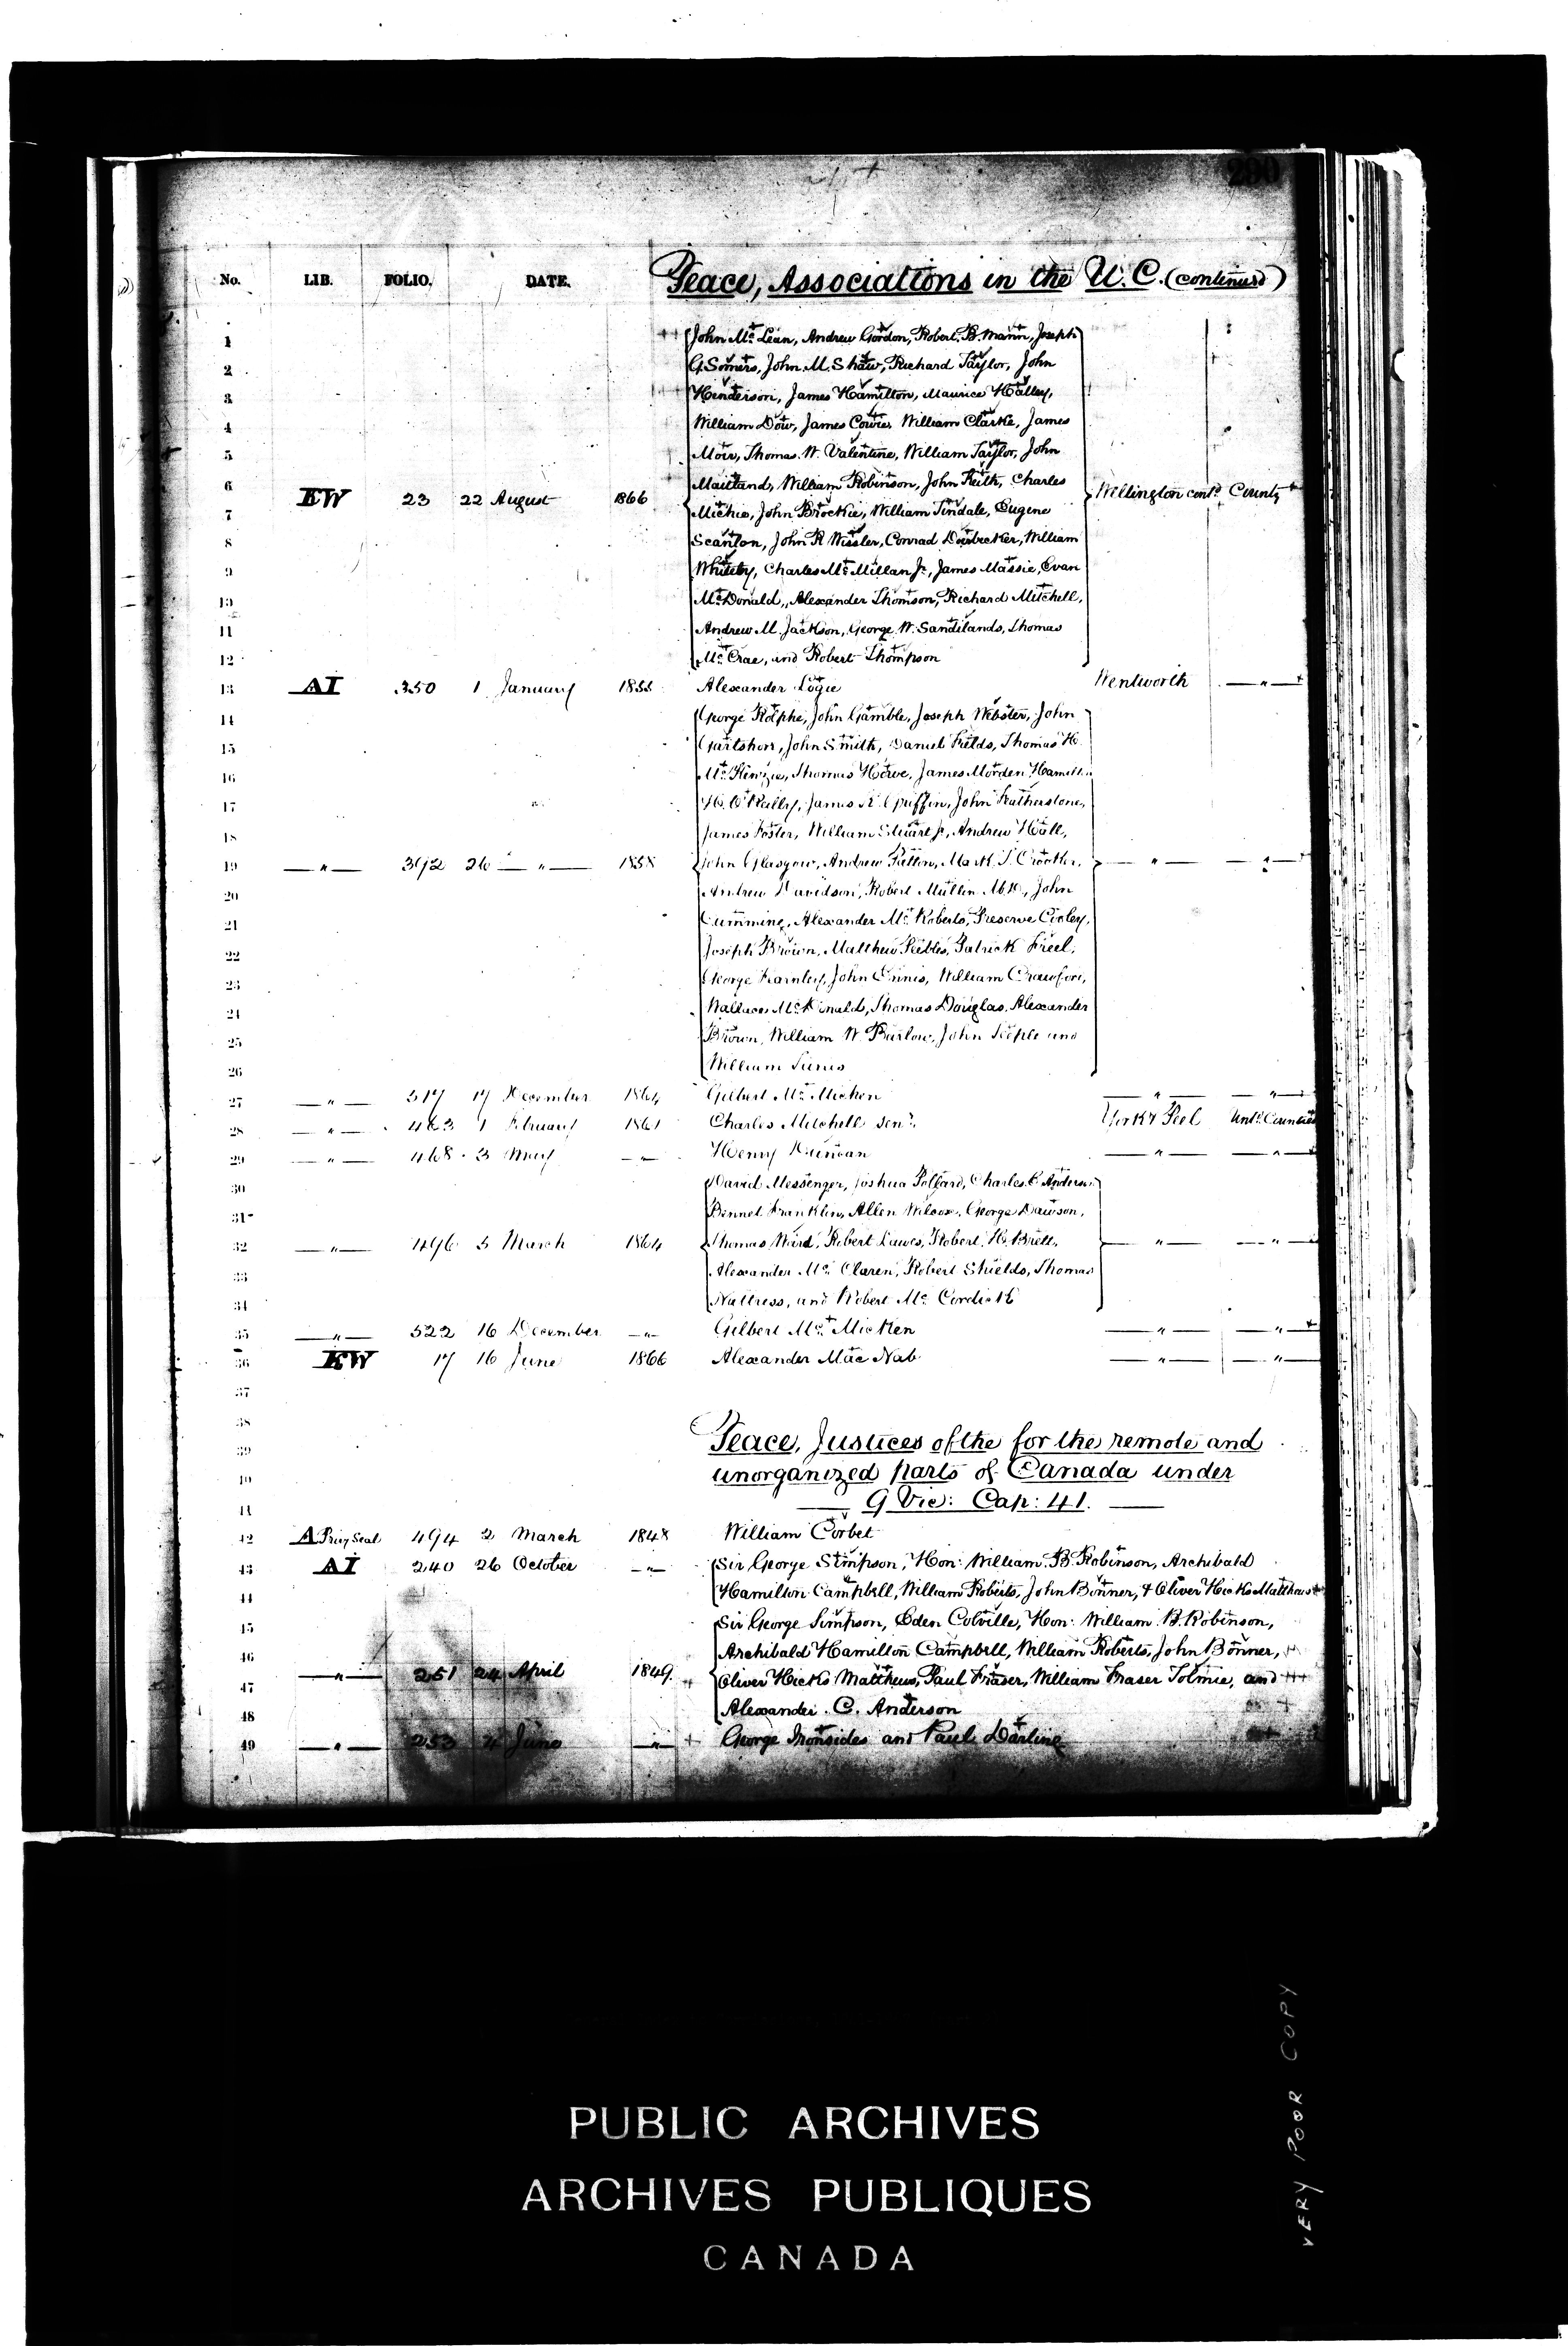 290
No. LIB. FOLIO. DATE. Peace, Associations in the U.C. (continued)
1 John McLean, Andrew Gordon, Robert B. Mann, Joseph
2 G. Somers, John M. Shaw, Richard Taylor, John
3 Henderson, James Hamilton, Maurice Halley,
4 William Dow, James Cowie, William Clarke, James
5 Moir, Thomas W. Valentine, William Taylor, John
6 Maitland, William Robinson, John Keith, Charles
EW 23 22 August 1866 Wellington contd. County
7 Michie, John Brockie, William Tindale, Eugene
8 Scanlon, John R Wissler, Conrad Dorbecker, William
9 Whiteley, Charles McMillan Jr., James Massie, Evan
10 McDonald, Alexander Thomson, Richard Mitchell,
11 Andrew M. Jackson, George W. Sandilands, Thomas
12 McCrae, and Robert Thompson
13 AI 350 1 January Alexander Logie Wentworth — " —
14 George Rolphe, John Gamble, Joseph Webster, John
15 Gartshore, John Smith, Daniel Fields, Thomas H.
16 McKenzie, Thomas Howe, James Morden, Hamilton
17 H. O'Reilly, James K. Griffin, John Featherstone,
18 James Foster, William Stuart Jr, Andrew Hall,
19 — " — 392 26 — " — 1858 John Glasgow, Andrew Patton, Mark T. Crocker, — " — — " —
20 Andrew Davidson, Robert Mullin M.D., John
21 Cumming, Alexander McRoberts, Preserve Cooley,
22 Joseph Brown, Matthew Peebles, Patrick Freel,
23 George John Ennis, William Crawford,
24 Wallace McDonald, Thomas Douglas, Alexander
25 Brown, William W. Barlow, John and
26 William
27 — " — 517 17 December 1864 Gilbert McMicken — " — — " —
28 — " — 463 1 February 1861 Charles Mitchell senr. York & Peel Untd. Counties
29 — " — 468 3 May — " — Henry Duncan — " — — " —
30 David Messenger, Joshua Pollard, Charles E. Anderson
31 Bennet Franklin, Allen Wilcox, George Dawson,
32 — " — 496 3 March 1864 Thomas Ward, Robert Lawes, Robert H. Brett, — " — — " —
33 Alexander McClaren, Robert Shields, Thomas
34 Nattress, and Robert McCordick
35 — " — 522 16 December — " — Gilbert McMicken — " — — " —
36 EW 17 16 June 1866 Alexander MacNab — " — — " —
37
38
39 Peace, Justices of the for the remote and
40 unorganized parts of Canada under
41 9 Vic: Cap: 41.
42 A Privy Seal 494 2 March 1848 William Corbet
43 AI 240 26 October — " — Sir George Simpson, Hon: William B. Robinson, Archibald
44 Hamilton Campbell, William Roberts, John Bonner, & Oliver Hicks Matthews
45 Sir George Simpson, Eden Colville, Hon: William B. Robinson,
46 Archibald Hamilton Campbell, William Roberts, John Bonner,
47 — " — 251 24 April 1849 Oliver Hicks Matthews, Paul Fraser, William Fraser Tolmie, and
48 Alexander C. Anderson
49 — " — 253 4 June — " — George Ironsides and Paul Darling
PUBLIC ARCHIVES
ARCHIVES PUBLIQUES
CANADA
VERY POOR COPY